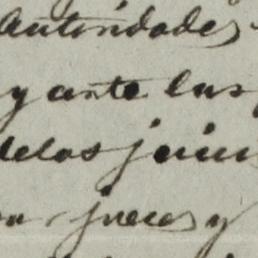 autoridades
y ante las
delos juic
jueces y